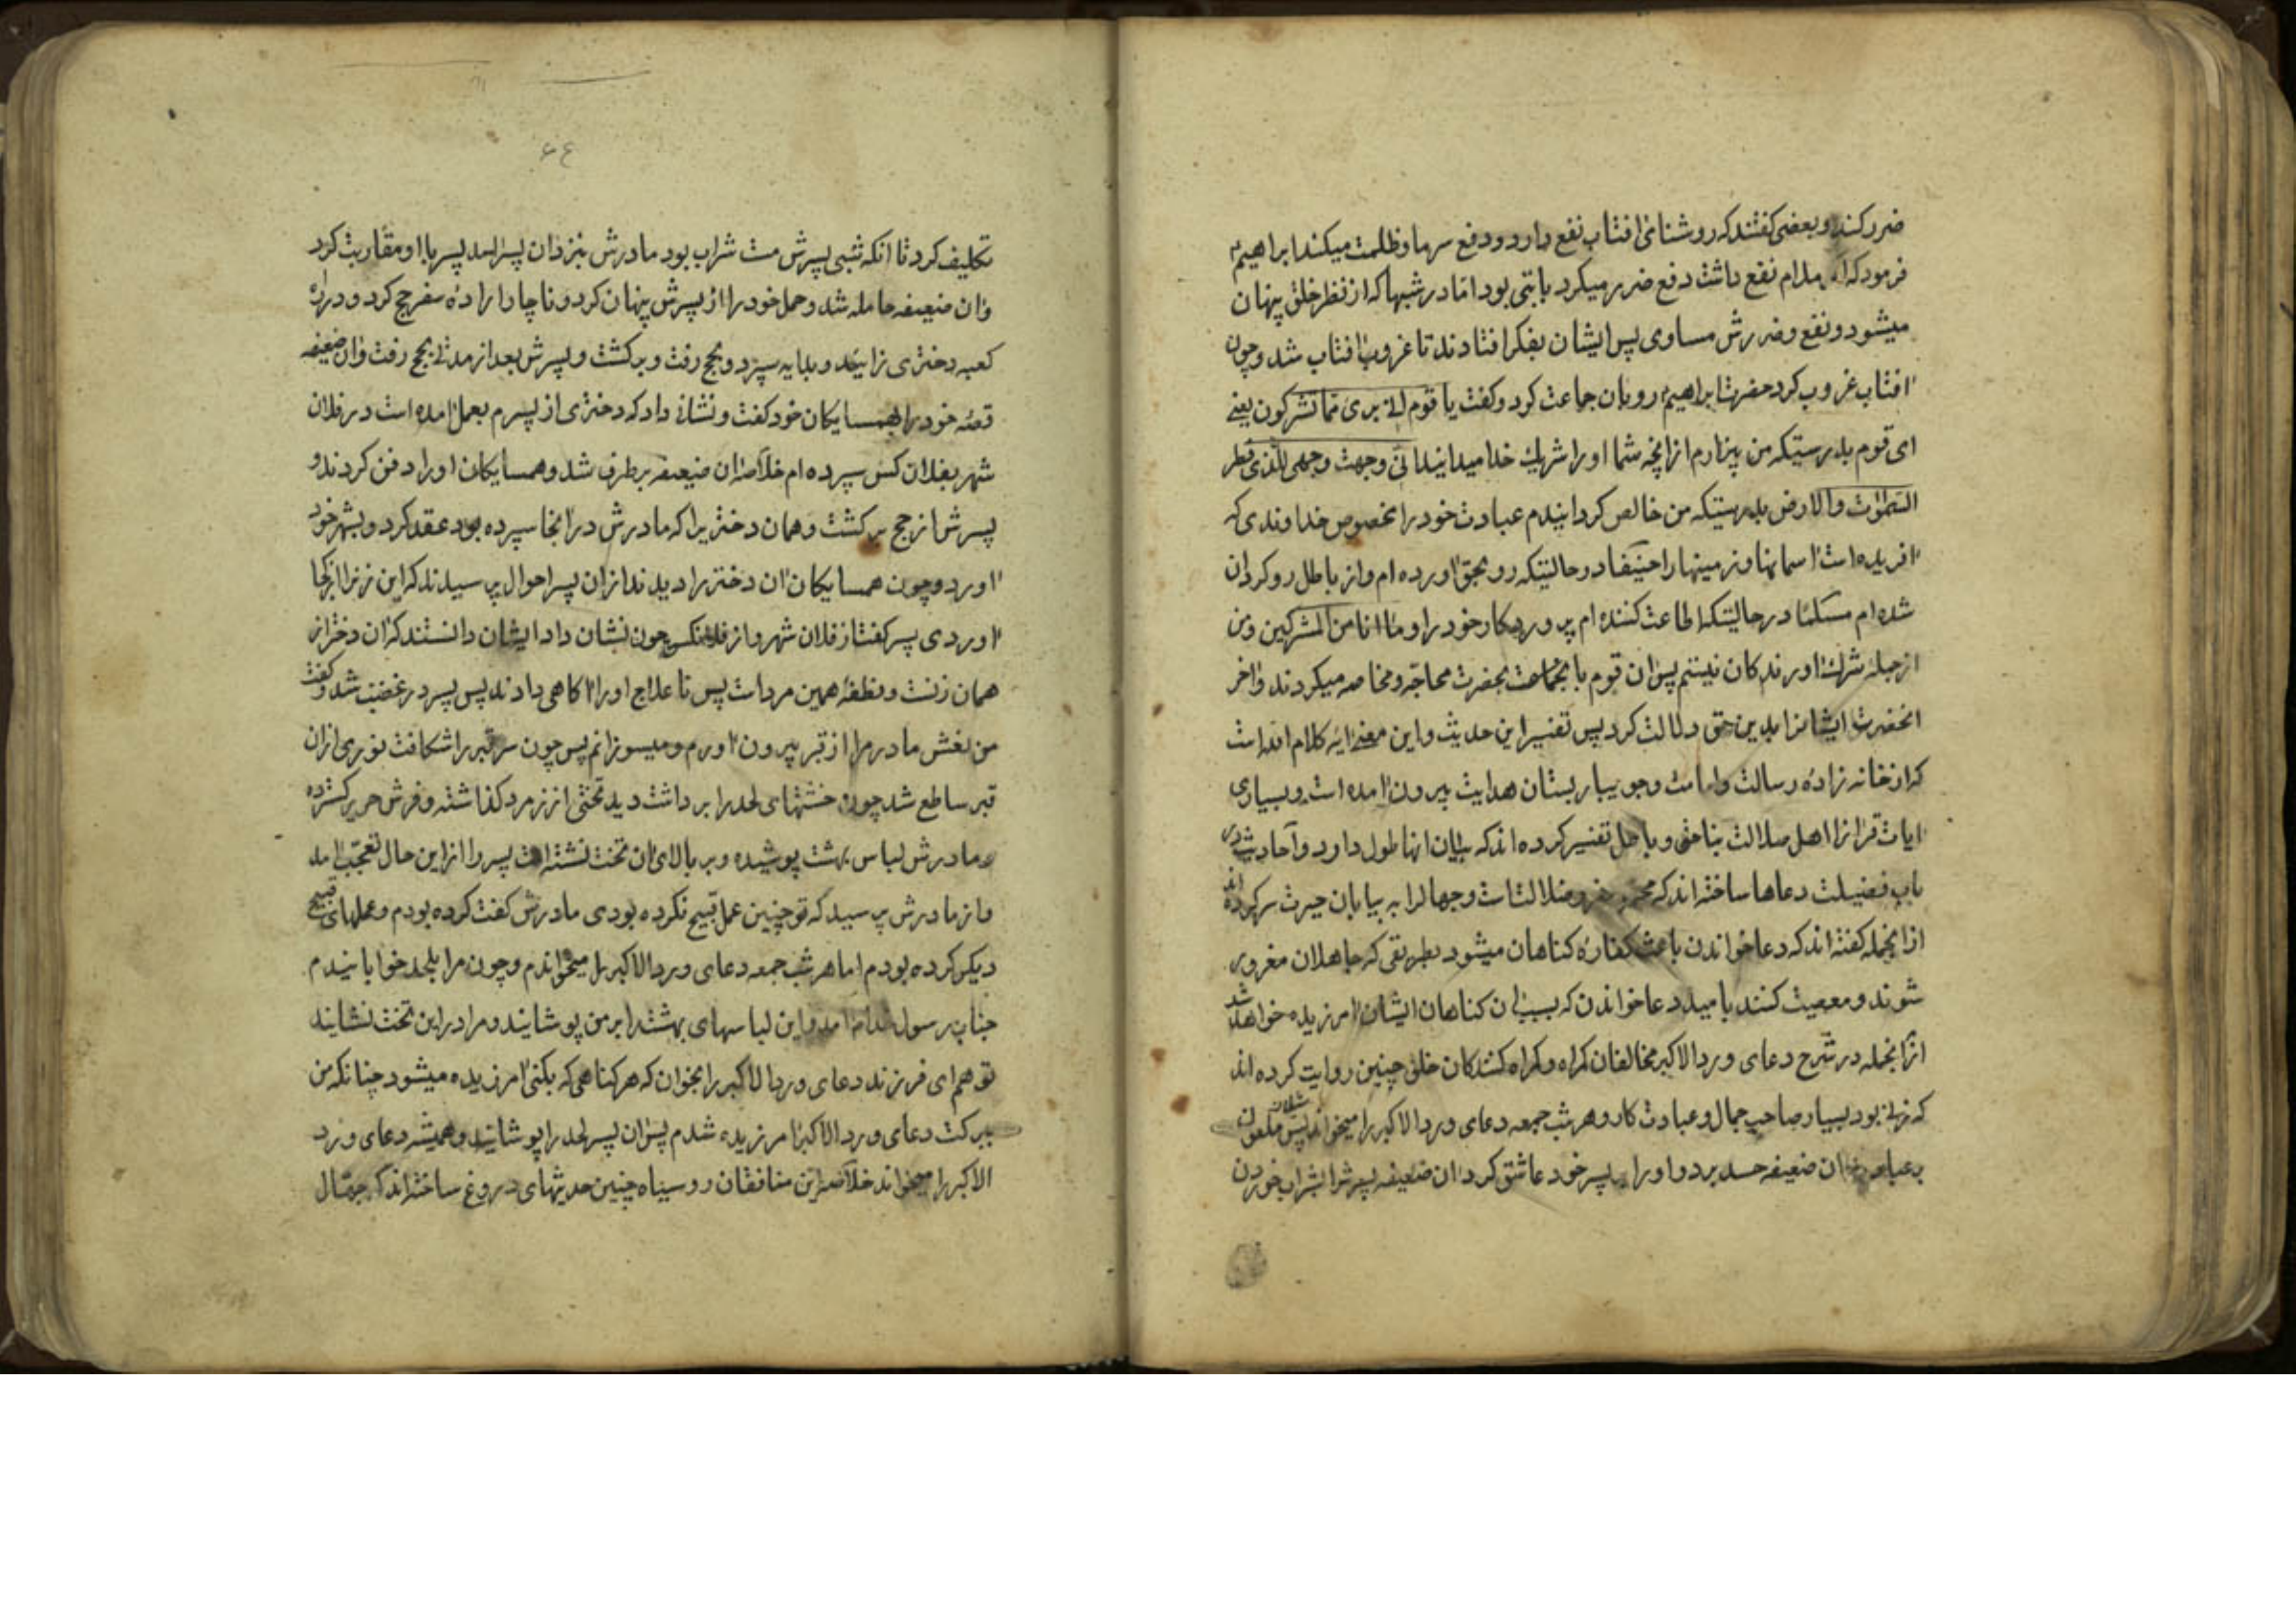 ضرر کند و بعضی کفتند که روشنائی افتاب نفع دارد و دفع سرما و ظلمت میکند ابراهیم
فرمود که مدام نفع داشت دفع ضرر میکرد بایتی بود اما در شبها که از نظر خلق پنهان
میشود و نفع و ضررش مساوی پس ایشان بفکر افتادند تا غروب افتاب شد و چون
افتاب غروب کرد حضرت ابراهیم رو بان جماعت کرد و کفت یا قوم انی بریء مما تشرکون یعنی
ای قوم بدرستیکه من بیزارم از انچه شما او را شریک خدا میدانید انی وجهت وجهی للذی فطر
السموٰت والارض بدرستیکه من خالص کردانیدم عبادت خود را مخصوص خداوندی که
افریده است اسمانها و زمینها را حنیفا در حالتیکه رو بحق اورده ام و از باطل رو کردان
شده ام مسلما در حالیتکه اطاعت کننده ام پروردکار خود را و ما انا من المشرکین و من
از جمله شرک اورندکان نیستم پس ان قوم با بحضرت محاجه و مخاصمه میکردند و اخر
انحضرت ایشانرا بدین حق دلالت کرد پس تفسیر این حدیث و این معنی ایه کلام الله است
که از خانه زاده رسالت و امامت و جویبار بستان هدایت بیرون امده است و بسیاری
ایات قرانرا اهل ضلالت بناحق و باطل تفسیر کرده اند که بیان انها طول دارد و احادیث در
باب فضیلت دعاها ساخته اند که ضلالتست و جهال را به بیابان حیرت سر کرده اند
از انجمله کفته اند که دعا خواندن باعث کفاره کناهان میشود بطریقی که جاهلان مغرور
شوند و معصیت کنند بامید دعا خواندن که بسبب ان کناهان ایشان امرزیده خواهد شد
از انجمله در شرح دعای ورد الاکبر مخالفان کمراه و کمراه کنندکان خلق چنین روایت کرده اند
که زنی بود بسیار صاحب جمال و عبادت کار و هر شب جمعه دعای ورد الاکبر را میخواند پس شیطان ملعون
بر ان ضعیفه حسد برد و او را بپسر خود عاشق کرد ان ضعیفه پسرش را بشراب خوردن
۶۴
تکلیف کرد تا انکه شبی پسرش مست شراب بود مادرش بنزد ان پسر امد پسر با او مقاربت کرد
و ان ضعیفه حامله شد و حمل خود را از پسرش پنهان کرد و ناچار اراده سفر حج کرد و در راه
کعبه دختری زایید و بدایه سپرد و بحج رفت و برکشت و پسرش بعد از مدتی بحج رفت و ان ضعیفه
قصه خود را بهمسایکان خود کفت و نشانی داد که دختری از پسرم بعمل امده است در فلان
شهر بفلان کس سپرده ام خلاصه ان ضعیفه بر طرف شد و همسایکان او را دفن کردند و
پسرش از حج برکشت و همان دختریرا که مادرش در انجا سپرده بود عقد کرد و بشهر خود
اورد و چون همسایکان ان دختر را دیدند از ان پسر احوال پرسیدند که این زنرا از کجا
اوردی پسر کفت از فلان شهر و از فلانکس چون نشان داد ایشان دانستند که ان دختر از
همان زنست و نطفه همین مرد است پس ناعلاج او را اکاهی دادند پس پسر در غضب شد و کفت
من نعش مادرمرا از قبر بیرون اورم و میسوزانم پس چون سر قبر را شکافت نوری از ان
قبر ساطع شد چون خشتهای لحد را برداشت دید تختی از زمرد کذاشته و فرش حریر کسترده
و مادرش لباس بهشت پوشیده و بر بالای ان تخت نشسته است پسر را از این حال تعجب امد
و از مادرش پرسید که تو چنین عمل قبیح نکرده بودی مادرش کفت کرده بودم و عملهای قبیح
دیکر کرده بودم اما هر شب جمعه دعای ورد الاکبر را میخواندم و چون مرا بلحد خوابانیدم
جناب رسول خدا امد و این لباسهای بهشت را بر من پوشانید و مرا در این تخت نشانید
تو هم ای فرزند دعای ورد الاکبر را بخوان که هر کناهی که بکنی امرزیده میشود چنانکه من
ببرکت دعای ورد الاکبر امرزیده شدم پس ان پسر لحد را پوشانید و همیشه دعای ورد
الاکبر را میخواند خلاصه این منافقان رو سیاه چنین حدیثهای دروغ ساخته اند که جهال